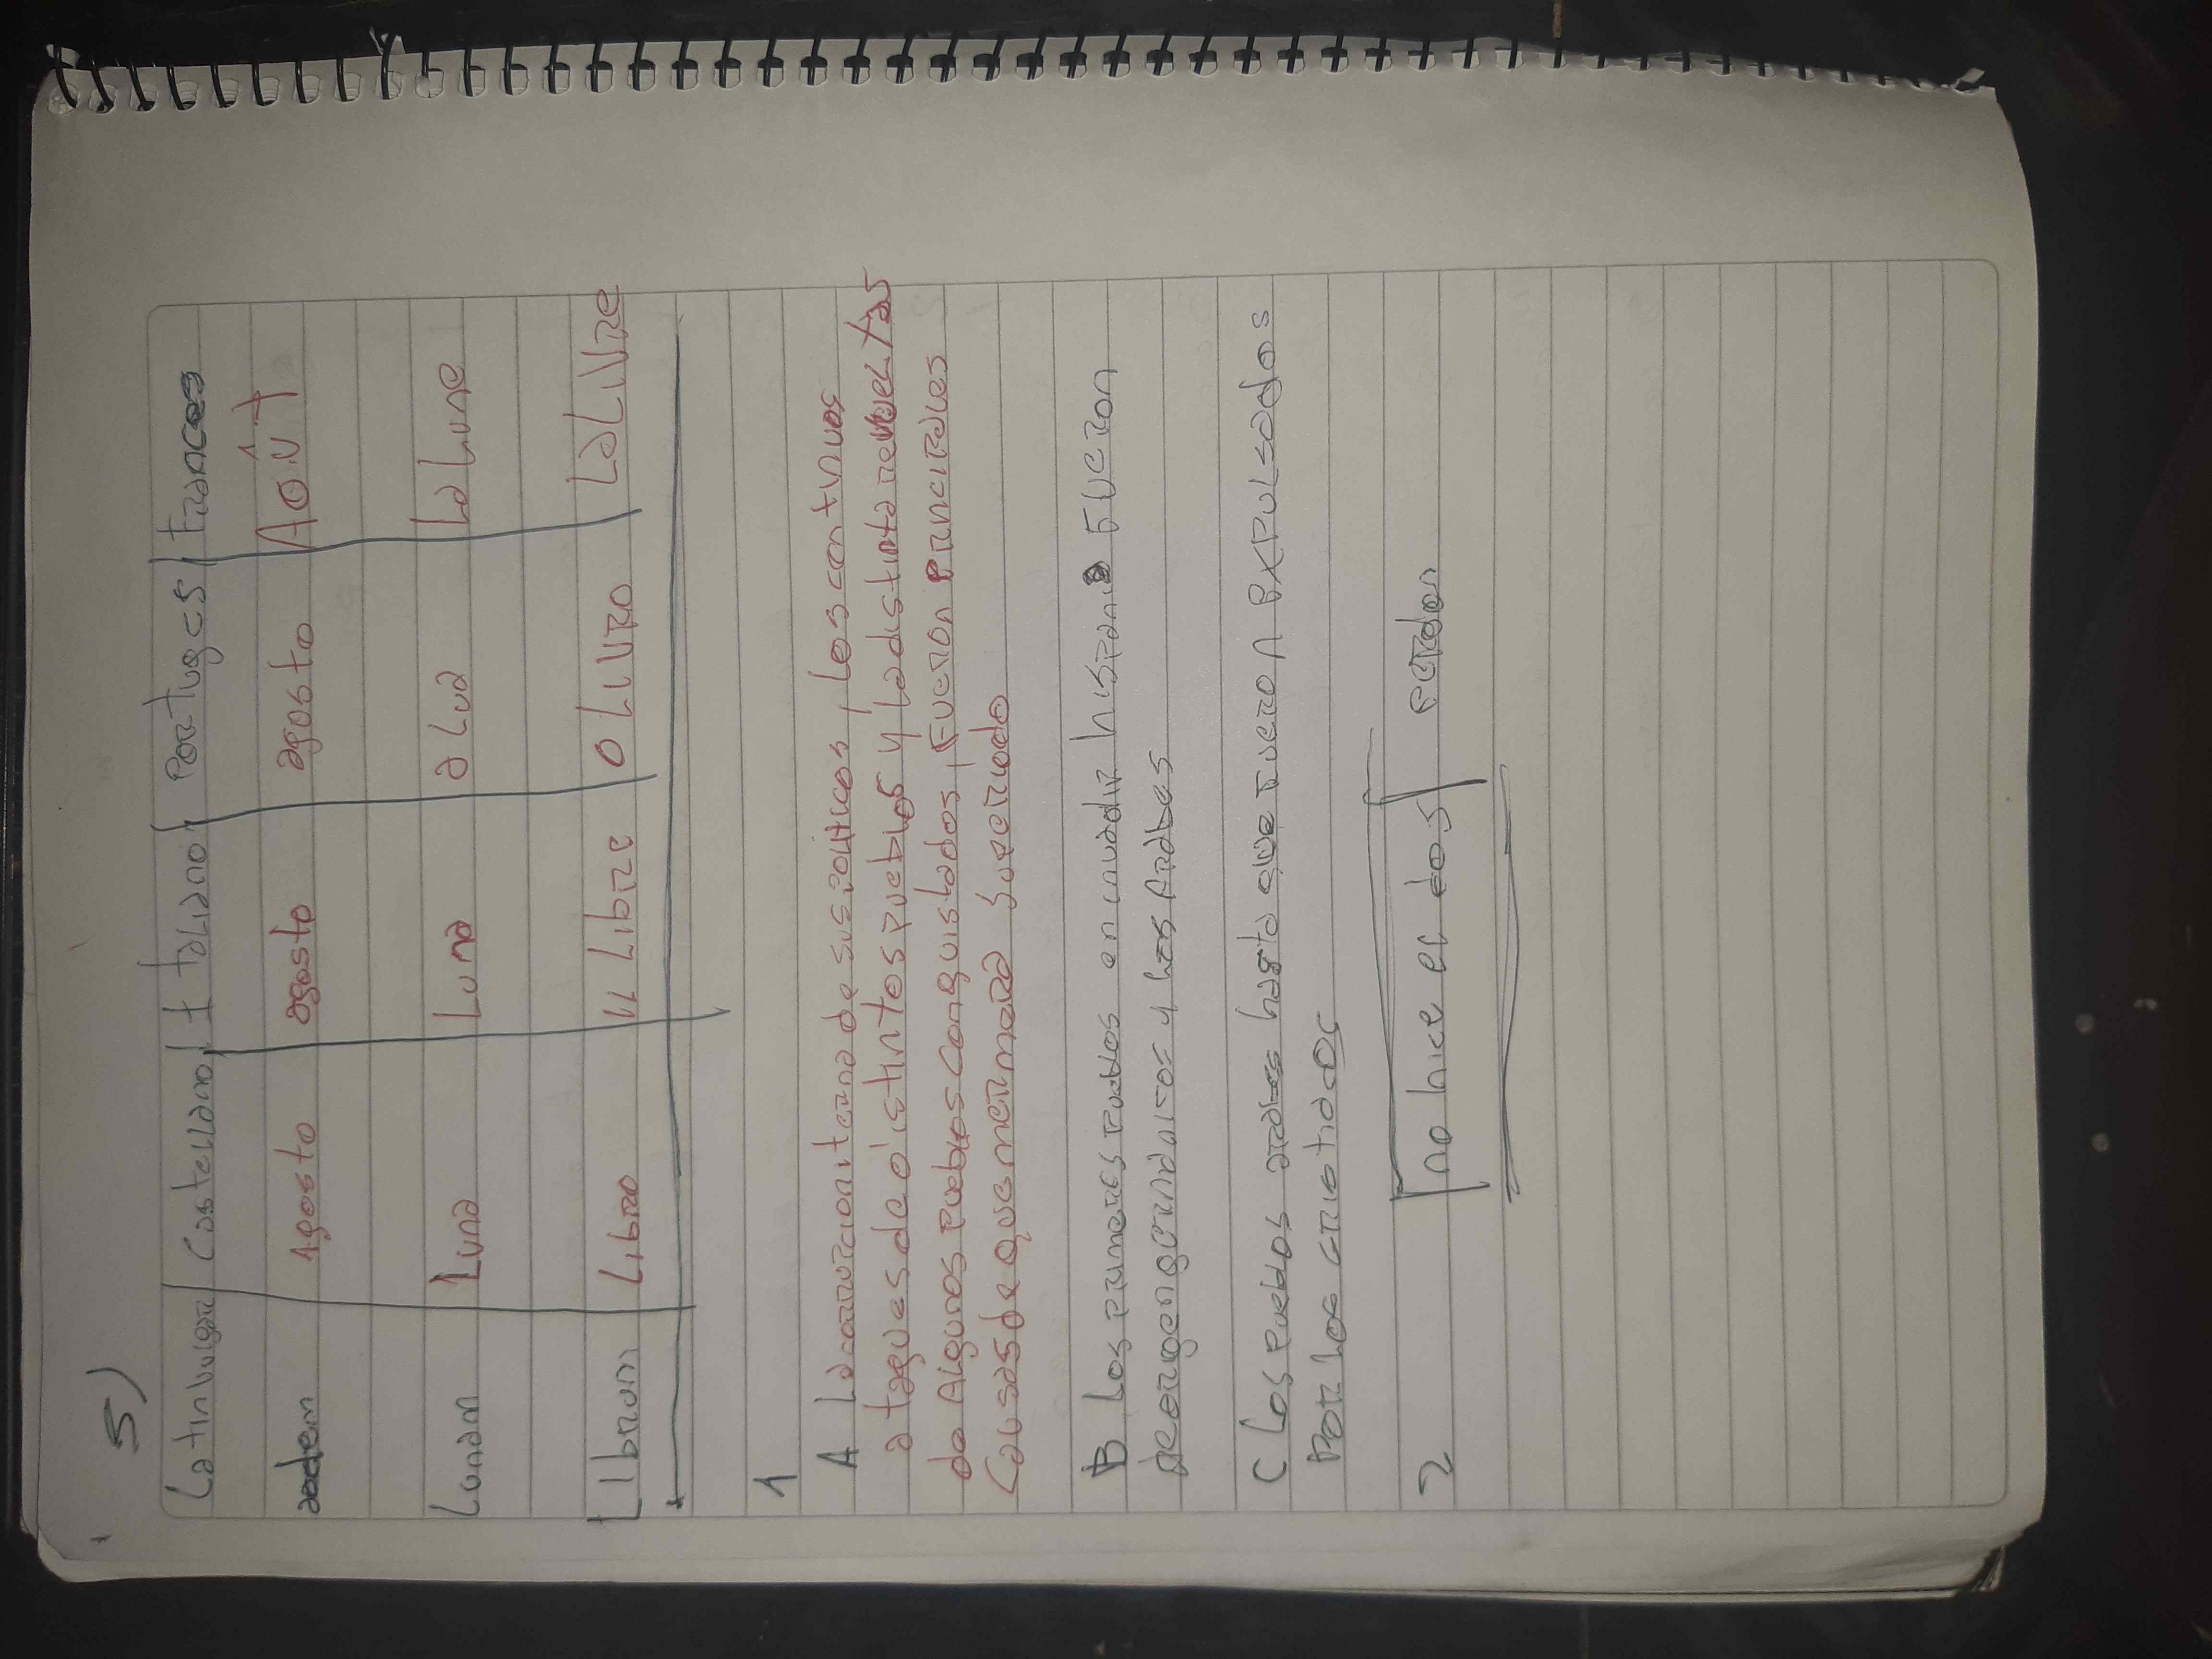 5)
Latin vulgar Castellano Italiano Portuges frances
Agosto agosto agosto AOÛT
Lunam Luna Luna a Lua La Lune
Librum Libro il Libre O Livro La Livre
1
A La corrupcion iterna de sus politicos, los continuos
ataques de distintos pueblos y la distinta revueltas
de Algunos pueblos conquistados, Fueron principales
Causas de que nermara su periodo
B Los primeros pueblos en invadir hispania Fueron
de origen germanicos y los Arabes
C Los pueblos arabes hasta que fueron expulsados
Por los cristianos
2 no hice el dos perdon